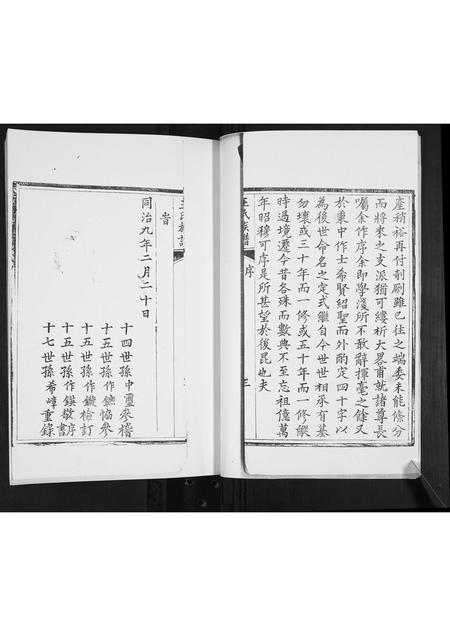 產稍裕再付剞劂雖已往之端委未能條分
而將來之支派猶可縷析大畧甫就諸尊長
囑余作序余即學淺所不敢辭揮毫之餘又
於秉中作士希賢紹聖而外酌定四十字以
為後世命名之定式繼自今世世相承有基
勿壞或三十年而一修或五十年而一修縱
時過境遷今昔各殊而數典不至忘祖億萬
年昭穆可序是所甚望於後昆也夫
王氏族譜
序
三
旹
同治九年二月二十日
十四世孫中
參稽
十五世孫作
恊參
十五世孫作
檢訂
十五世孫作
敬序
十七世孫希
重錄